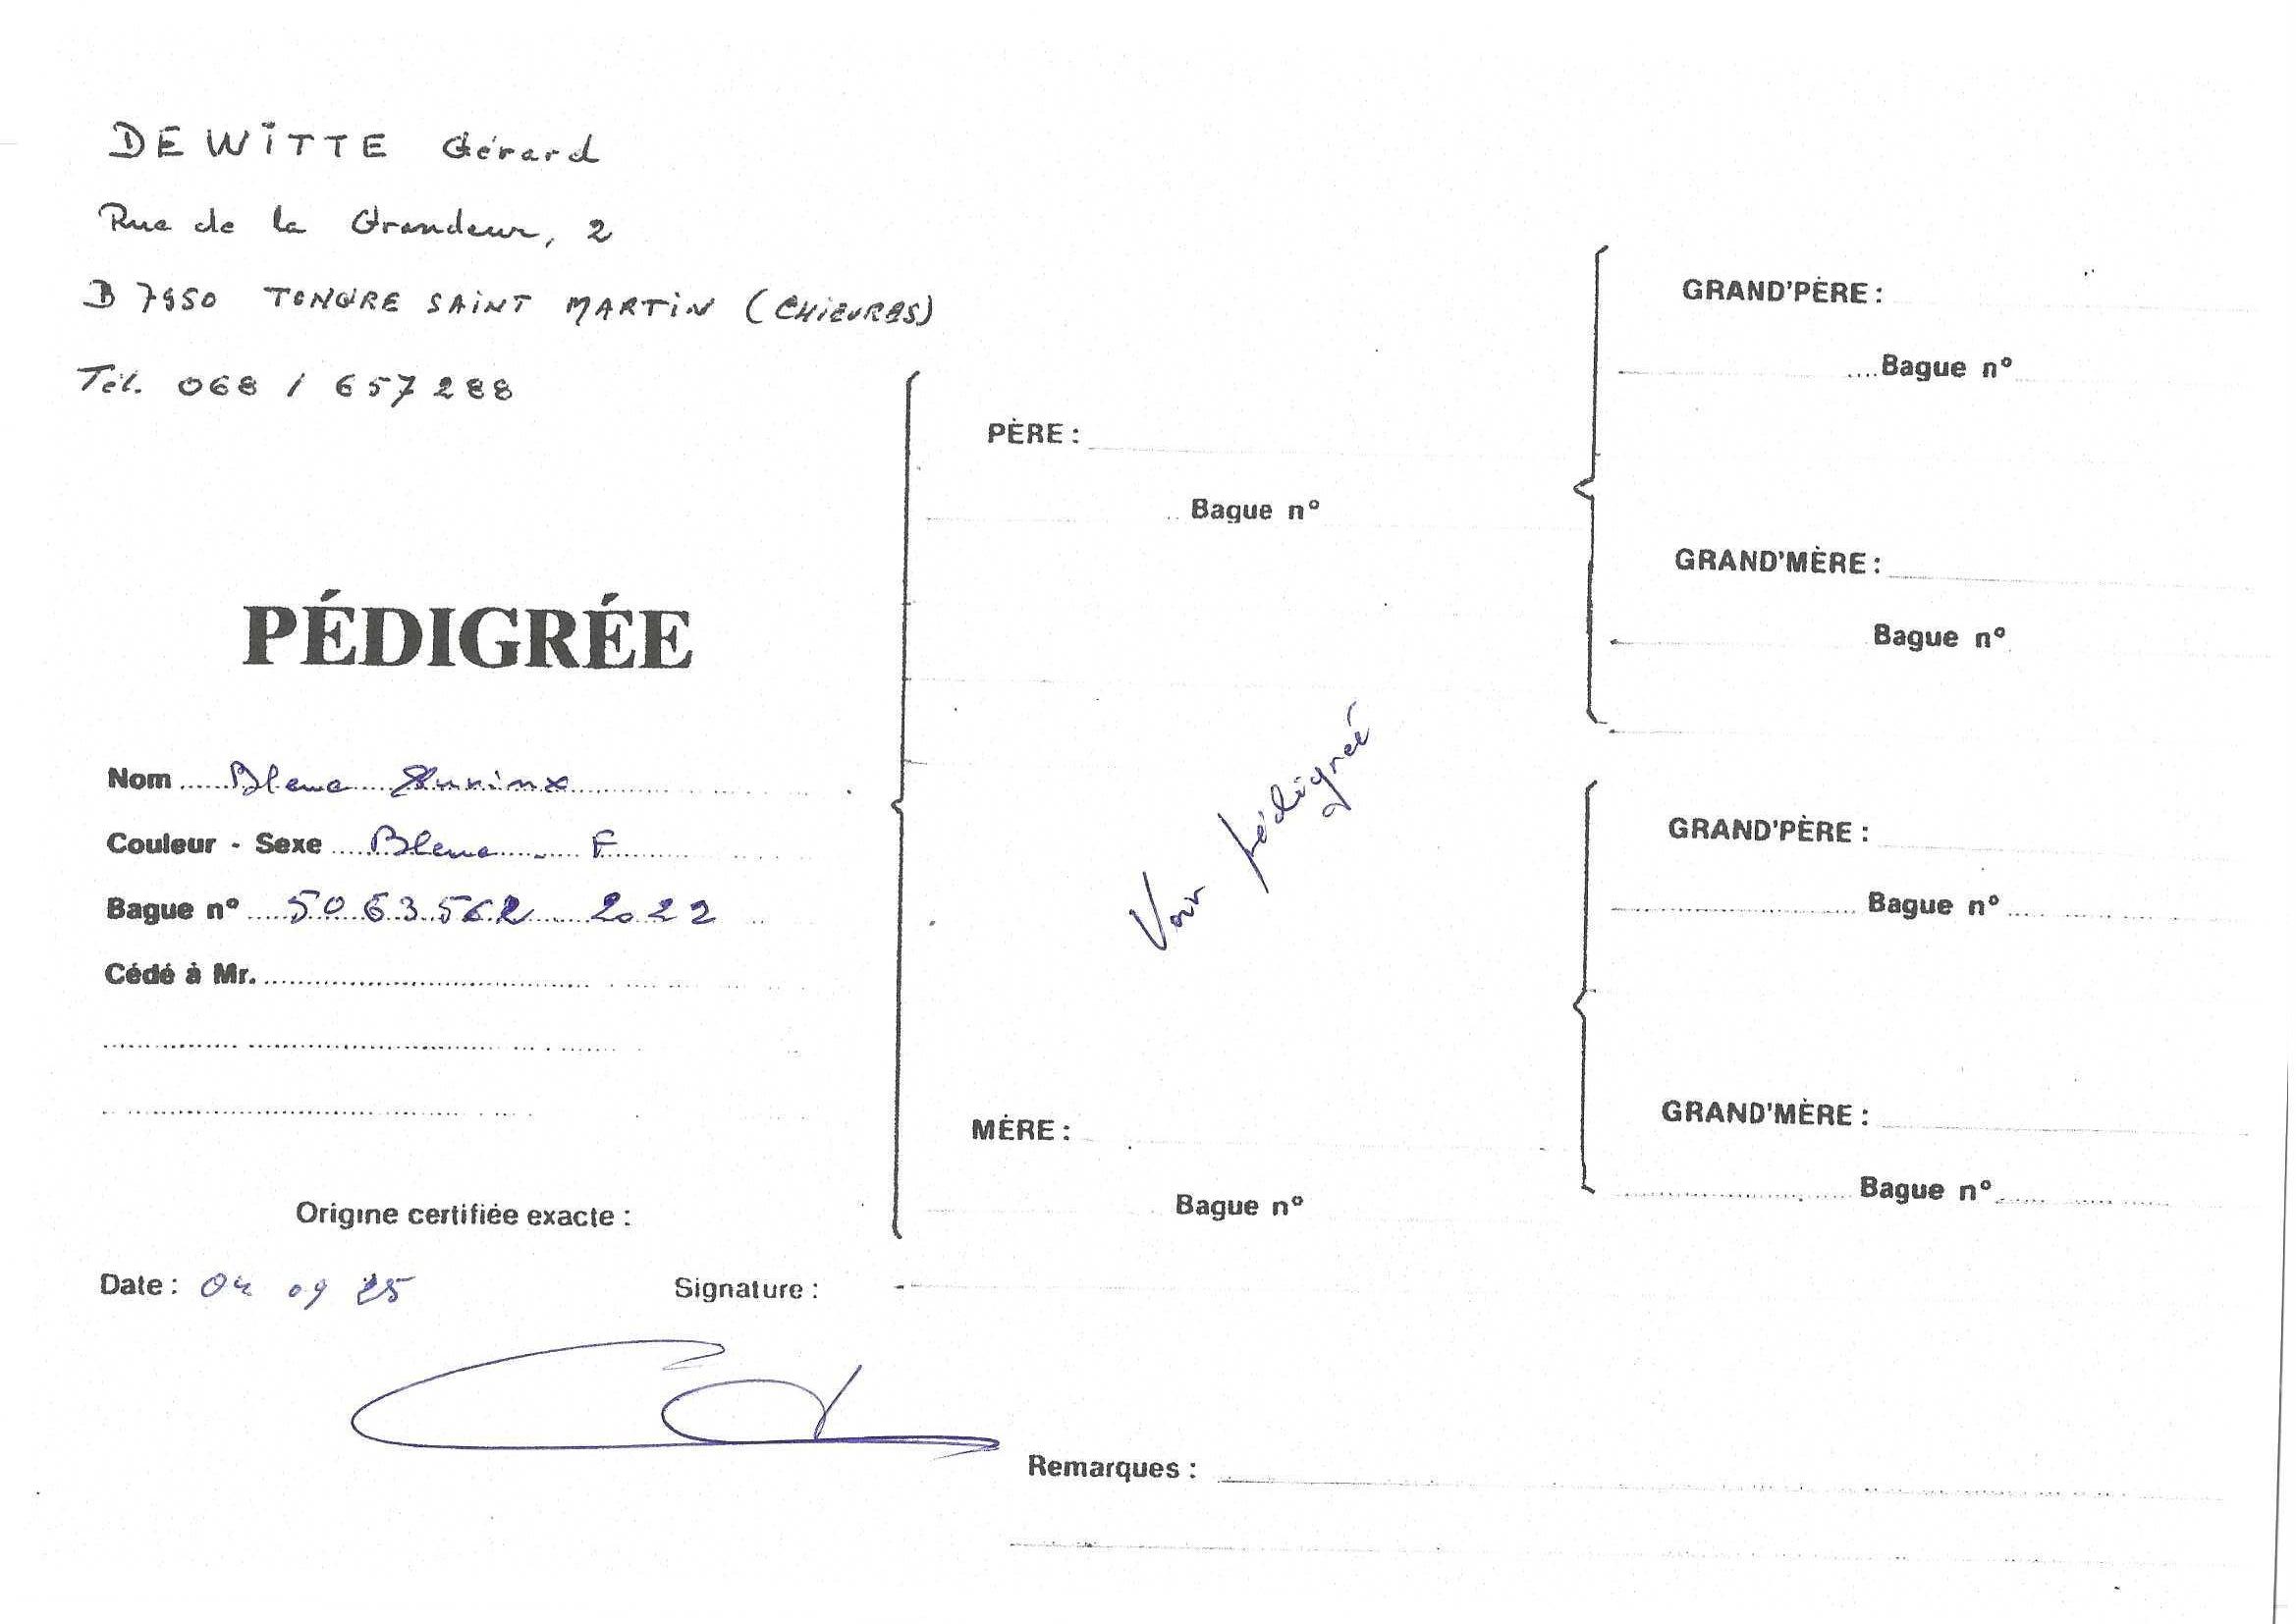 DEWITTE Gérard
Rue de la Grandeur, 2
B 7950 TONGRE SAINT MARTIN (CHIEVRES)
Tél. 068 / 657288
PÉDIGRÉE
Nom Bleue
Couleur - Sexe Bleue - F
Bague n° 5063562 2022
Cédé à Mr.
Origine certifiée exacte :
Date : 04 09 25 Signature :
PÈRE :
Bague n°
Voir pédigreé
MÈRE :
Bague n°
GRAND'PÈRE :
Bague n°
GRAND'MÈRE :
Bague n°
GRAND'PÈRE :
Bague n°
GRAND'MÈRE :
Bague n°
Remarques :